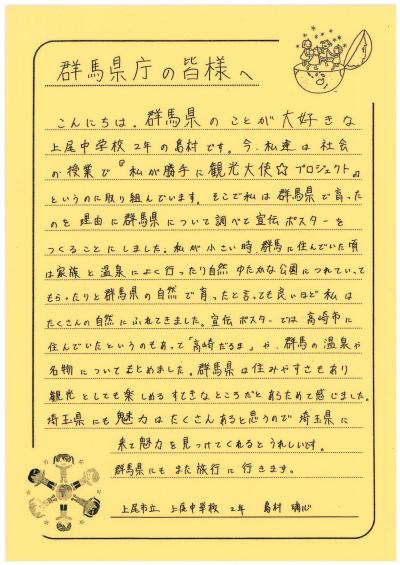 群馬県庁の皆様へ
こんにちは。群馬県のことが大好きな
上尾中学校2年の島村です。今、私達は社会
の授業で『私が勝手に観光大使☆プロジェクト』
というのに取り組んでいます。そこで私は群馬県で育った
のを理由に群馬県について調べて宣伝ポスターを
つくることにしました。私が小さい時、群馬に住んでいた頃
は家族と温泉によく行ったり自然ゆたかな公園につれていって
もらったりと群馬県の自然で育ったと言っても良いほど私は
たくさんの自然にふれてきました。宣伝ポスターでは高崎市に
住んでいたというのもあって「高崎だるま」や、群馬の温泉や
名物についてまとめました。群馬県は住みやすさもあり
観光としても楽しめるすてきなところだとあらためて感じました。
埼玉県にも魅力はたくさんあると思うので埼玉県に
来て魅力を見つけてくれるとうれしいです。
群馬県にもまた旅行に行きます。
上尾市立 上尾中学校 2年 島村